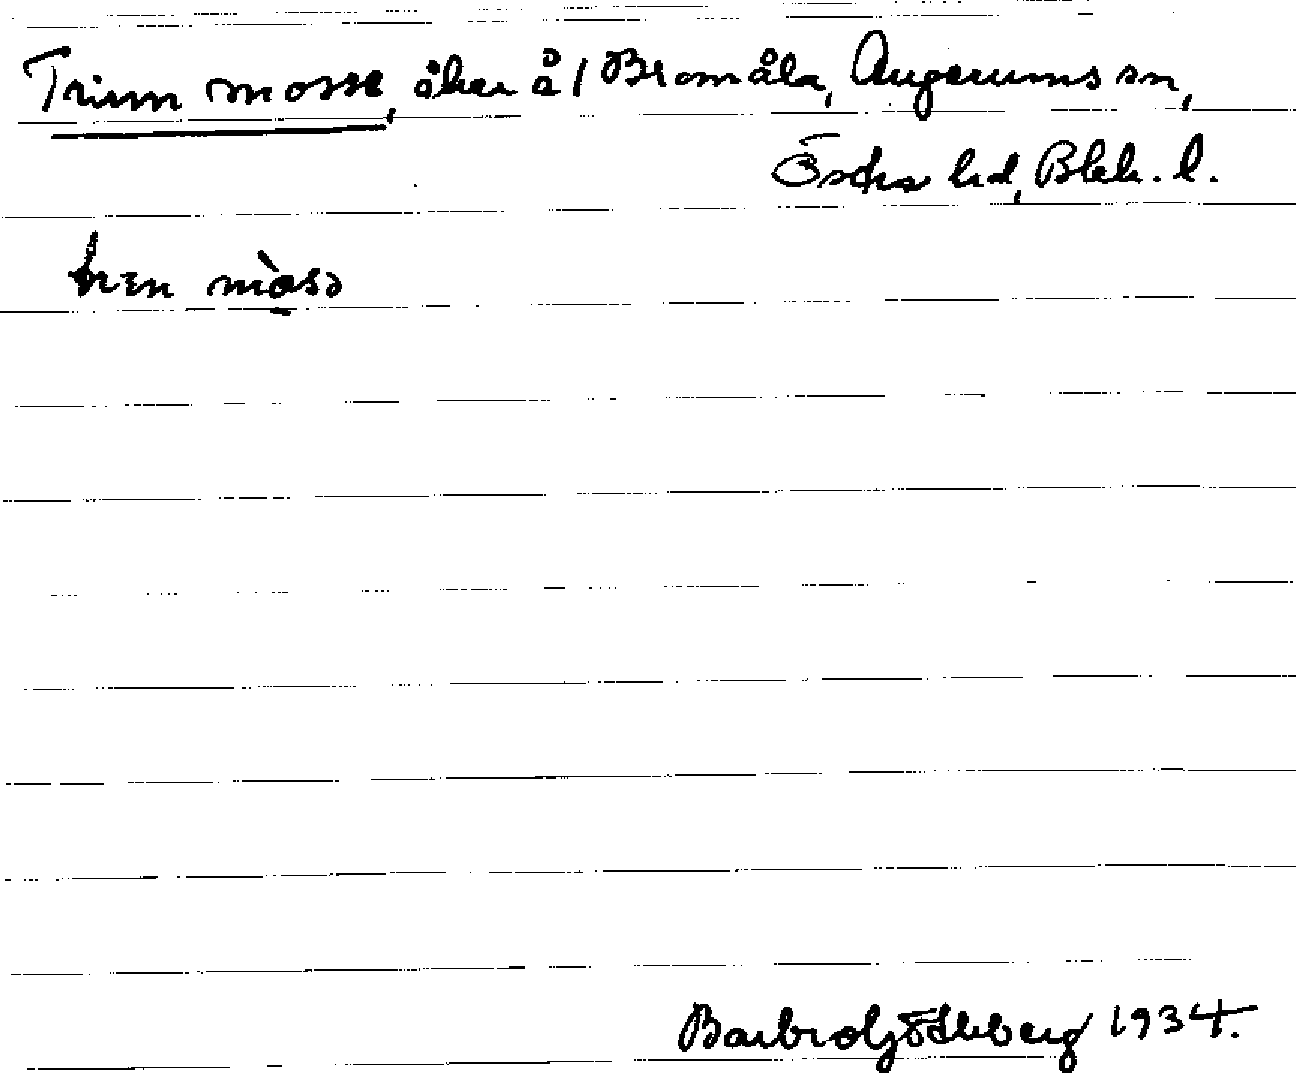 Trimm mosse, åker å 1 Bromåla, Augerums sn,
Östra hd, Blek. l.
mòsɔ
Barbro Söderberg 1934.